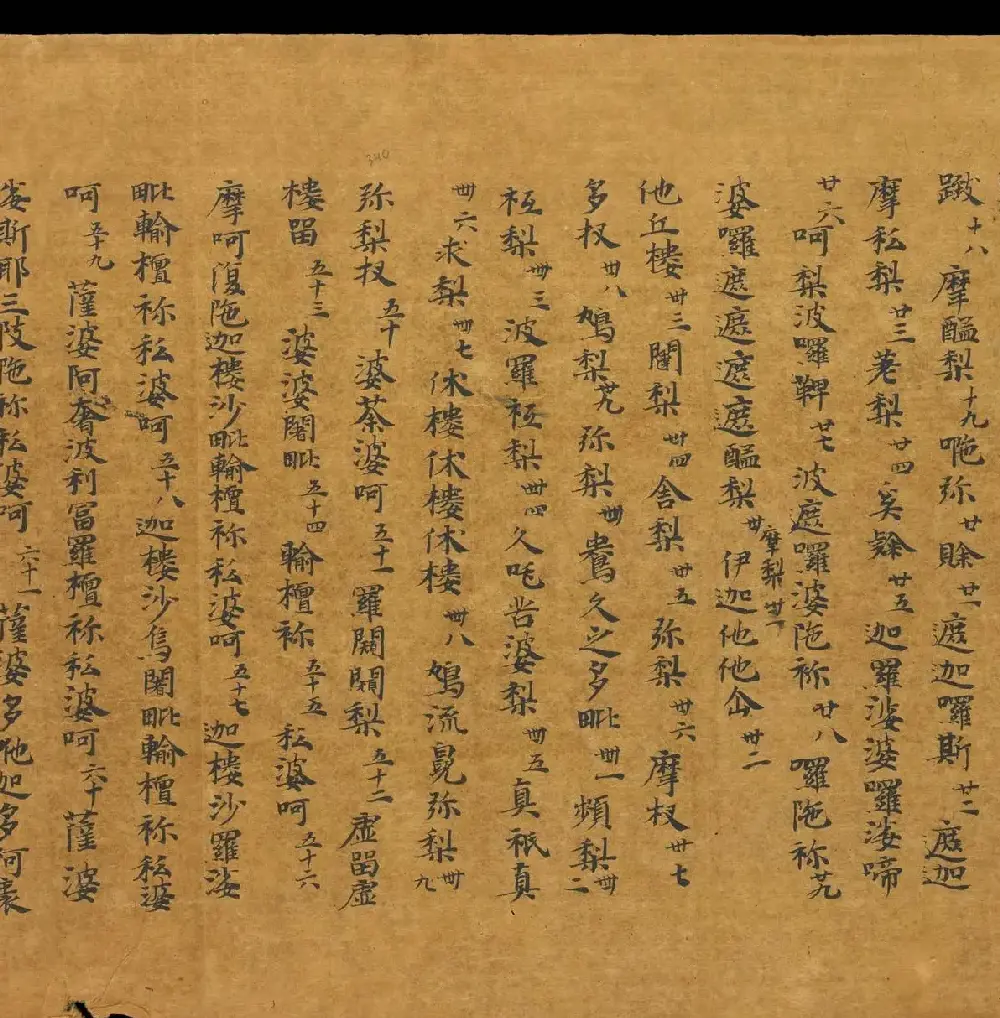 蹴十八摩醯梨十九咃弥廿賒廿一遮迦囉斯廿二遮迦
摩私梨廿三老梨廿四奚䤈廿五迦羅娑婆囉娑啼
廿六呵梨波囉鞞廿七波遮囉婆陁祢廿八囉陁祢廿九
婆囉遮遮遮遮醯梨卅摩梨卅一伊迦他他尒卅二
他丘樓卅三闍梨卅四舍梨卅五弥梨卅六摩杈卅七
多杈卅八鳩梨卅九弥梨卌鴦久之多毗卌一頻梨卌二
柢梨卌三波羅柢梨卌四久吒苦婆梨卌五真祇真
卌六求梨卌七休樓休樓休樓卌八鳩流毚弥梨卌九
弥梨杈五十婆荼婆呵五十一羅闕闕梨五十二虛留虛
樓留五十三婆婆闍毗五十四輸檀祢五十五私婆呵五十六
摩呵復陁迦樓沙毗輸檀祢私婆呵五十七迦樓沙羅娑
毗輸檀祢私婆呵五十八迦樓沙烏闍毗輸檀祢私婆
呵五十九薩婆阿奢波利富羅檀祢私婆呵六十薩婆
娑斯耶三陂陁祢私婆呵六十一薩婆多他迦多阿裹